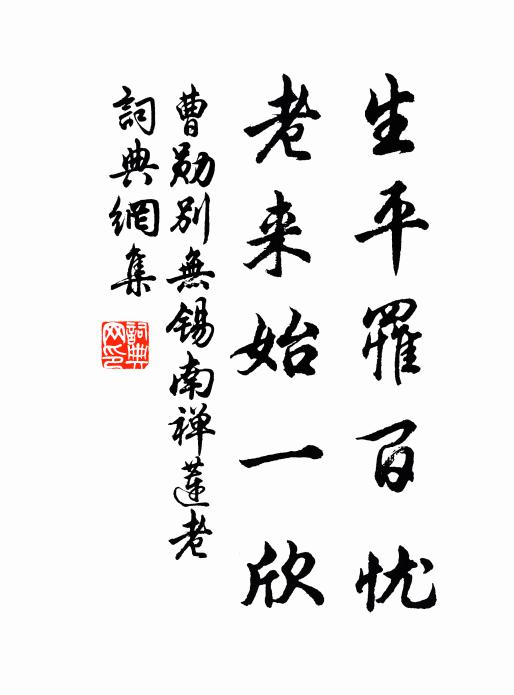 生平罹百忧
老来始一欣
曹勋别無锡南禅蓮老
詞典網集
詞典網印